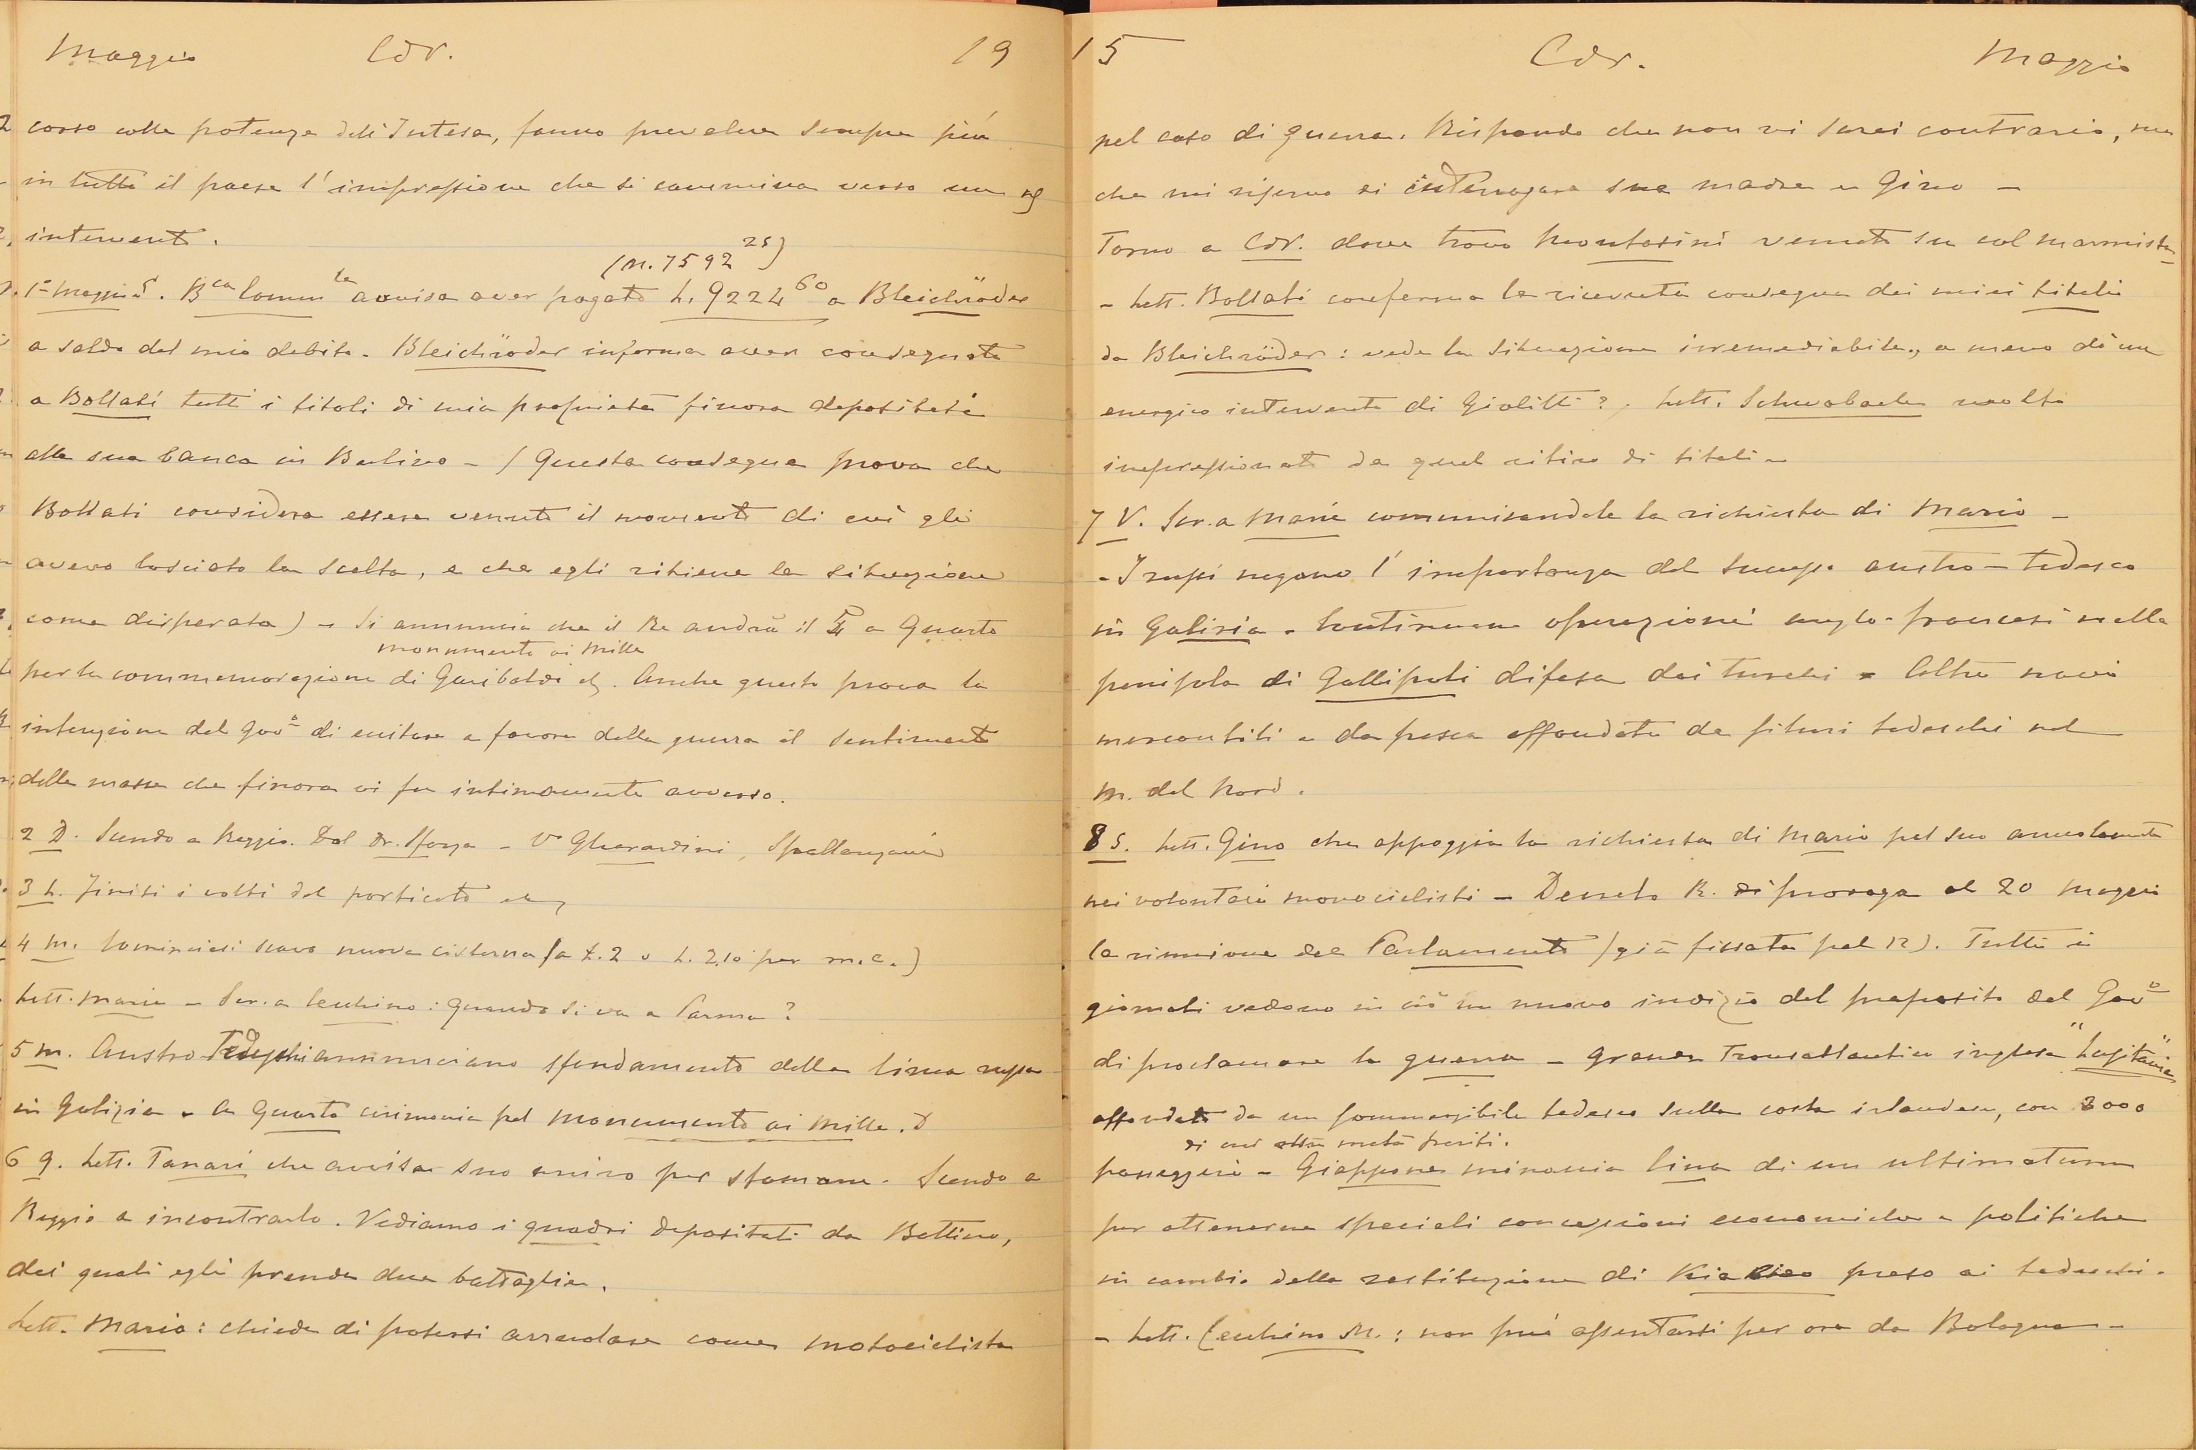 Maggio Cdr. 19
corso colle potenze dell'Intesa, fanno prevalere sempre più
in tutto il paese l'impressione che si cammina verso un ns
intervento.
(M. 7592 25)
1° Maggio S. Bca Comm le avvisa aver pagato L. 9224 60 a Bleichröder
a saldo del mio debito - Bleichröder informa aver consegnato
a Bollati tutti i titoli di mia proprietà finora depositati
alla sua banca in Berlino - (Questa consegna prova che
Bollati considera essere venuto il momento di cui gli
avevo lasciato la scelta, e che egli ritiene la situazione
come disperata) - Si annuncia che il Re andrà il 5 a Quarto
monumento ai Mille
per la commemorazione di Garibaldi . Anche questo prova la
intenzione del Govo di eccitare a favore della guerra il sentimento
delle masse che finora vi fu intimamente avverso.
2 D. Scendo a Reggio. Dal Dr. Sforza - Vo Gherardini, Spallanzani
3 L. Finiti i volti del porticato
4 M. Cominciasi scavo nuova cisterna (a L. 2 o L. 2,10 per m.c.)
Lett. Maria - Scr. a Cecchino: quando si va a Parma?
5 M. Austro Tedeschi annunciano sfondamento della linea russa
in Galizia - A Quarto cerimonia pel monumento ai Mille.
6 G. Lett. Tanari che avvisa suo arrivo per stamane. Scendo a
Reggio a incontrarlo. Vediamo i quadri depositati da Bettino,
dei quali egli prende due battaglie.
Lett. Mario: chiede di potersi arruolare come motociclista
15 Cdr. Maggio
nel caso di guerra. Rispondo che non vi sarei contrario, ma
che mi riservo di interrogare sua madre e Gino -
Torno a Cdr. dove trovo Montorsini venuto su col marmista
- Lett. Bollati conferma la ricevuta consegna dei miei titoli
da Bleichröder: vede la situazione irremediabile, a meno di un
energico intervento di Giolitti? Lett. Schwabach molto
impressionato da quel ritiro di titoli -
7 V. Scr. a Maria comunicandole la richiesta di Mario -
- I russi negano l'importanza del successo austro-tedesco
in Galizia - Continuano operazioni anglo-francesi nella
penisola di Gallipoli difesa dai turchi - Altre navi
mercantili e da pesca affondate da siluri tedeschi nel
M. del Nord.
8 S. Lett. Gino che appoggia la richiesta di Mario pel suo arruolamento
nei volontari motociclisti - Decreto R. di proroga al 20 Maggio
la riunione del Parlamento (già fissata pel 12). Tutti i
giornali vedono in ciò un nuovo indizio del proposito del Govo
di proclamare la guerra - Grande transatlantico inglese "Lusitania"
affondato da un sommergibile tedesco sulla costa irlandese, con 2000
di cui oltre metà periti.
passeggeri - Giappone minaccia Cina di un ultimatum
per ottenerne speciali concessioni economiche e politiche
in cambio della restituzione di Kiao preso ai tedeschi.
- Lett. Cecchino M.: non può assentarsi per ora da Bologna -